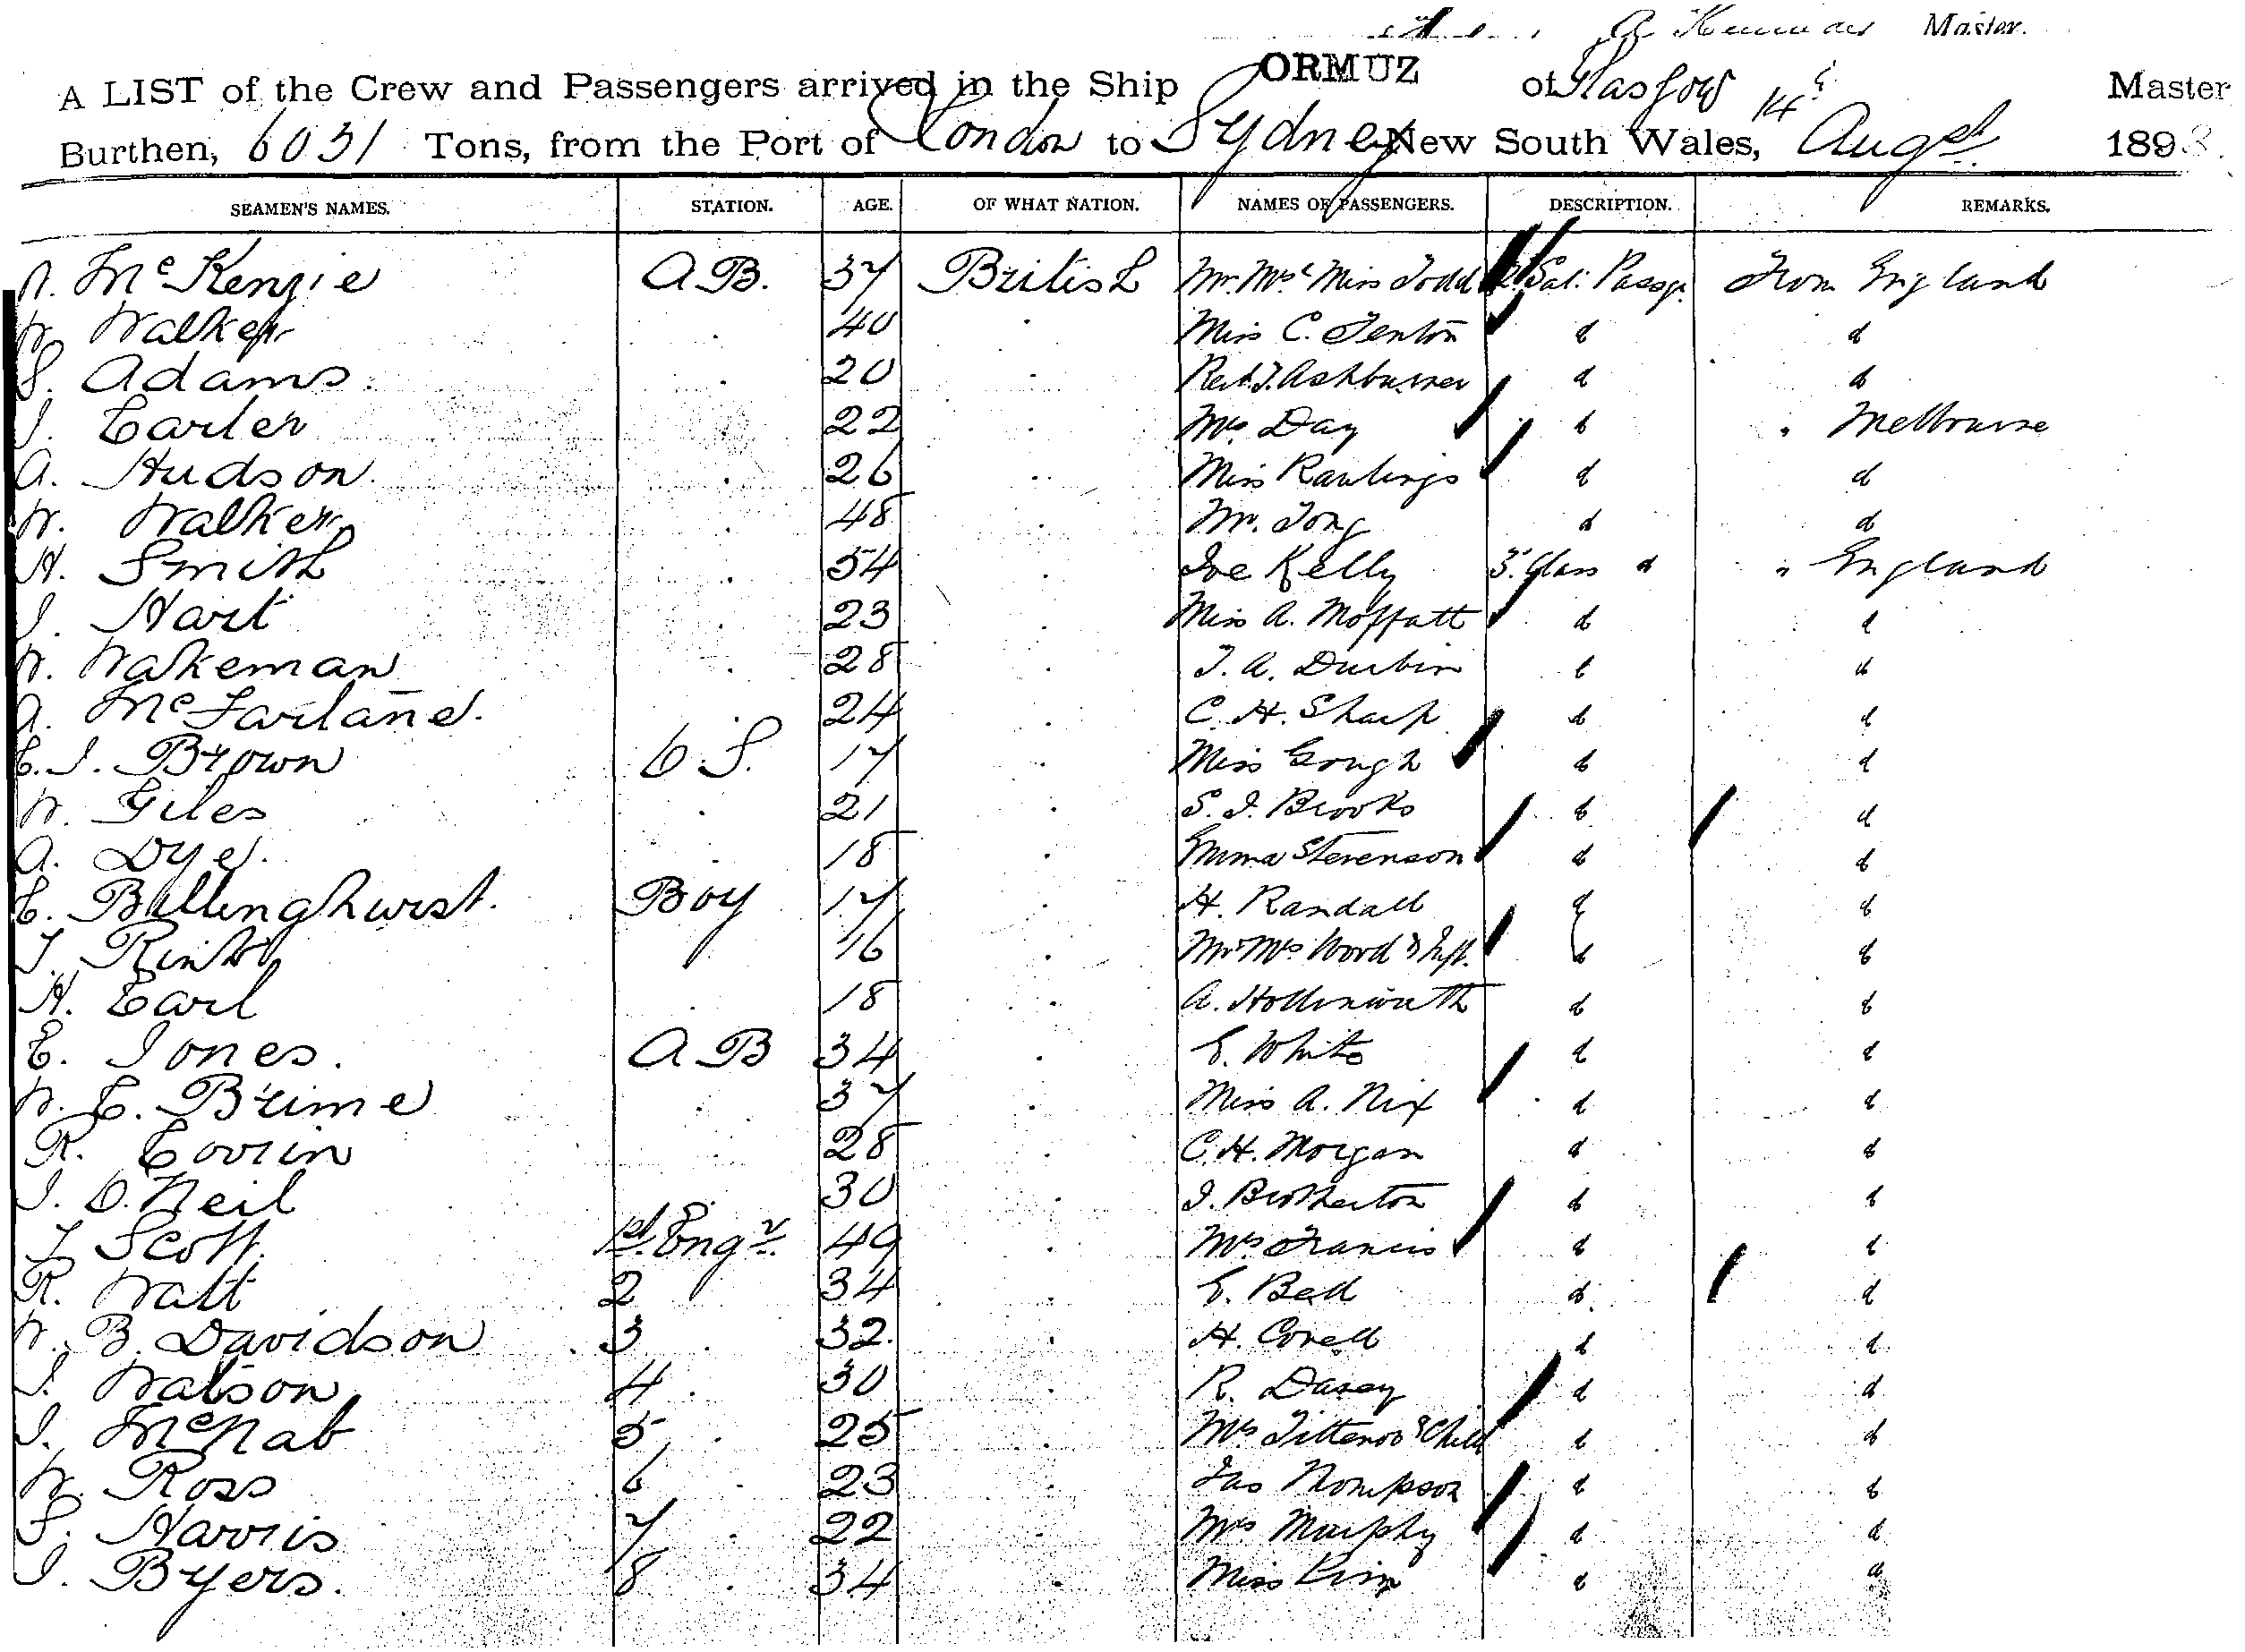 Master.
A LIST of the Crew and Passengers arrived in the Ship ORMUZ of Glasgow Master
Burthen, 6031 Tons, from the Port of London to Sydney New South Wales, 14 Augst 189
SEAMEN'S NAMES. STATION. AGE. OF WHAT NATION. NAMES OF PASSENGERS. DESCRIPTION. REMARKS.
Mc Kenzie A B. 37 British Mr. Mrs & Miss Todd Sal: Passgr. From England
W. Walker 40 Miss C. Fenton d d
S. Adams 20 Revd. J. Ashburner d d
J. Carter 22 Mrs. Day d " Melbourne
A. Hudson 26 Miss Rawlings d d
W. Walker 48 Mr. Tong d d
H. Smith 54 Joe Kelly 3. Class d " England
J. Hart 23 Miss A. Moffatt d d
W. Wakeman 28 J. A. Durbin d d
A. Mc Farlane. 24 C. H. Sharp d d
C. J. Brown O.S. 17 Miss Gough d d
W. Giles 21 S. J. Brooks d d
A. Dye. 18 Emma Stevenson d d
E. Billinghurst. Boy 17 H. Randall d d
16 Mr Mrs Word & Inft. d d
H. Earl 18 A. Hollinworth d d
E. Jones. A B 34 E. White d d
W. E. Brime 37 Miss A. Nix d d
R. 28 C. H. Morgan d d
J. O. Neil 30 J. Brotherton d d
Scott. 1st Engr. 49 Mrs Francis d d
R. Watt 2 34 E. Bell d d
W. B. Davidson 3 32. H. Covell d d
J. Watson 4 30 R. Dasay d d
J. McNab 5 25 Mrs & Child d d
W. Ross 6 23 Jas Thompson d d
S. Harris 7 22 Mrs Murphy d d
J. Byers. 8 34 Miss d d